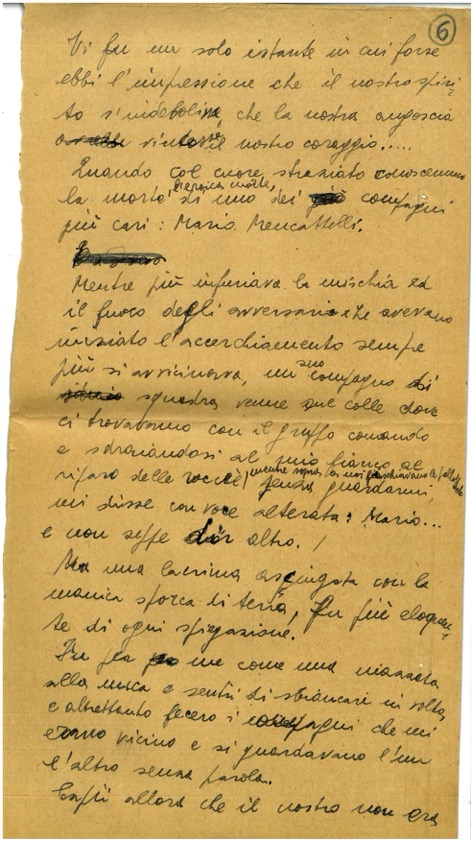 6
Vi fu un solo istante in cui forse
ebbi l'impressione che il nostro spiri-
to s'indebolisse, che la nostra angoscia
vincesse il nostro coraggio.....
Quando col cuore straziato conoscemmo
l'eroica morte,
la morte di uno dei compagni
più cari: Mario Mencattelli.
Mentre più infuriava la mischia ed
il fuoco degli avversari che avevano
iniziato l'accerchiamento sempre
più si avvicinava, un suo compagno di
squadra venne sul colle dove
ci trovavamo con il gruppo comando
e sdraiandosi al mio fianco al
riparo delle rocce, mentre sopra a noi fischiavano le pallottole
senza guardarmi,
mi disse con voce alterata: Mario...
e non seppe dir altro.
Ma una lacrima asciugata con la
manica sporca di terra, fu più eloquen-
te di ogni spiegazione.
Fu per me come una mazzata
alla nuca e sentii di sbiancare in volto,
e altrettanto fecero i compagni che mi
erano vicino e si guardavano l'un
l'altro senza parola.
Capii allora che il nostro non era